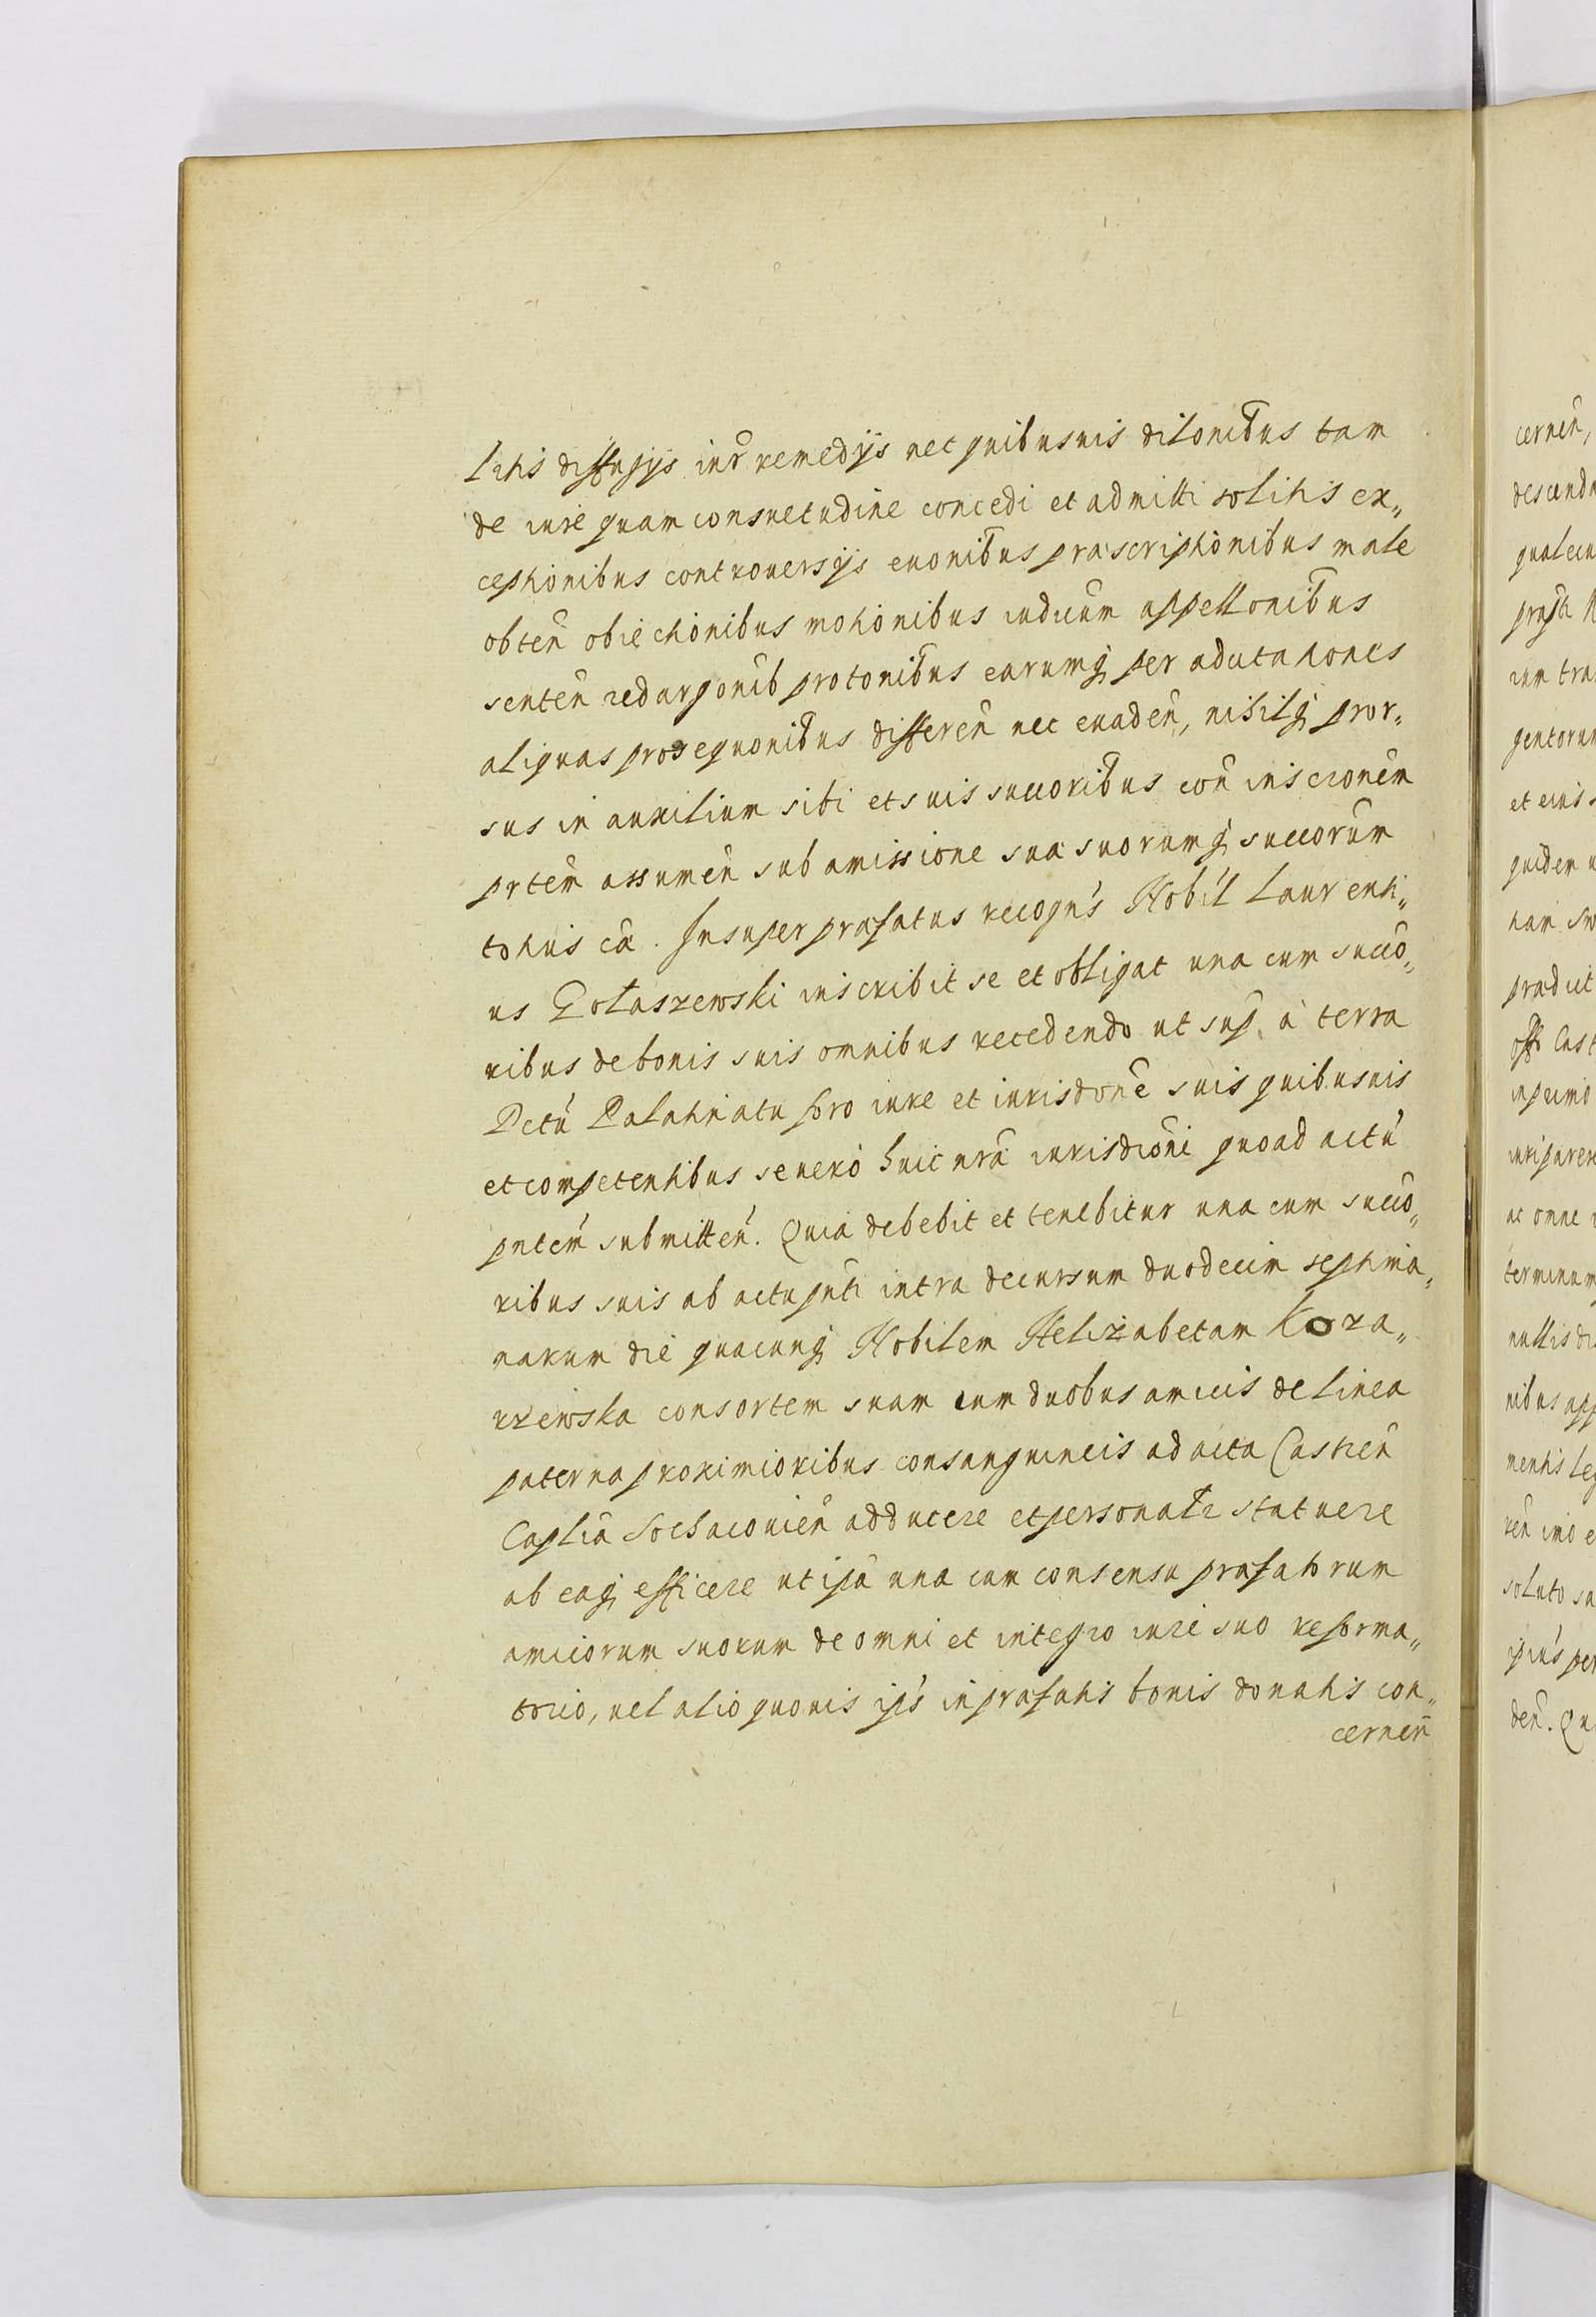 litis diffugijs iur̃ remedijs nec quibusuis dilonib̃us tam
de iure quam consuetudine concedi et admitti solitis ex„
ceptionibus controuersijs euonib̃us præscriptionibus male
obteñ obiectionibus motionibus iudicum appellonib̃us
senteñ redargoñib protonib̃us earumq; per adcitationes
aliquas prosequonib̃us differeñ nec euadeñ, nihilq; pror„
sus in auxilium sibi et suis succorib̃us coñ inscronem̃
prtem̃ assumeñ sub amissione sua suorumq; succorum̃
totius cã. Insuper præfatus recogñs Nobil Laurenti„
us Gołaszewski inscribit se et obligat una cum succo„
ribus de bonis suis omnibus recedendo ut sup. à terra
Dctu Palatinatu foro iure et iurisdone suis quibusuis
et competentibus se uero huic nrã iurisdioni quoad actu
pntem submitteñ. Quia debebit et tenebitur una cum succo„
ribus suis ab actu pñti intra decursum duodecim septima„
narum die quacunq; Nobilem Helizabetam Koza„
rzewska consortem suam cum duobus amicis de linea
paterna proximioribus consanguineis ad acta Castreñ
Caplia Sochacouieñ adducere et personalr statuere
ab eaq; efficere ut ipa una cum consensu præfatorum
amicorum suorum de omni et integro iure suo reforma„
torio, uel alio quouis ipŝ in præfatis bonis donatis con„
cerneñ
cerneñ,
gentorum
et eius
quidem
ac omne
terminum
nullis
nibus
soluto